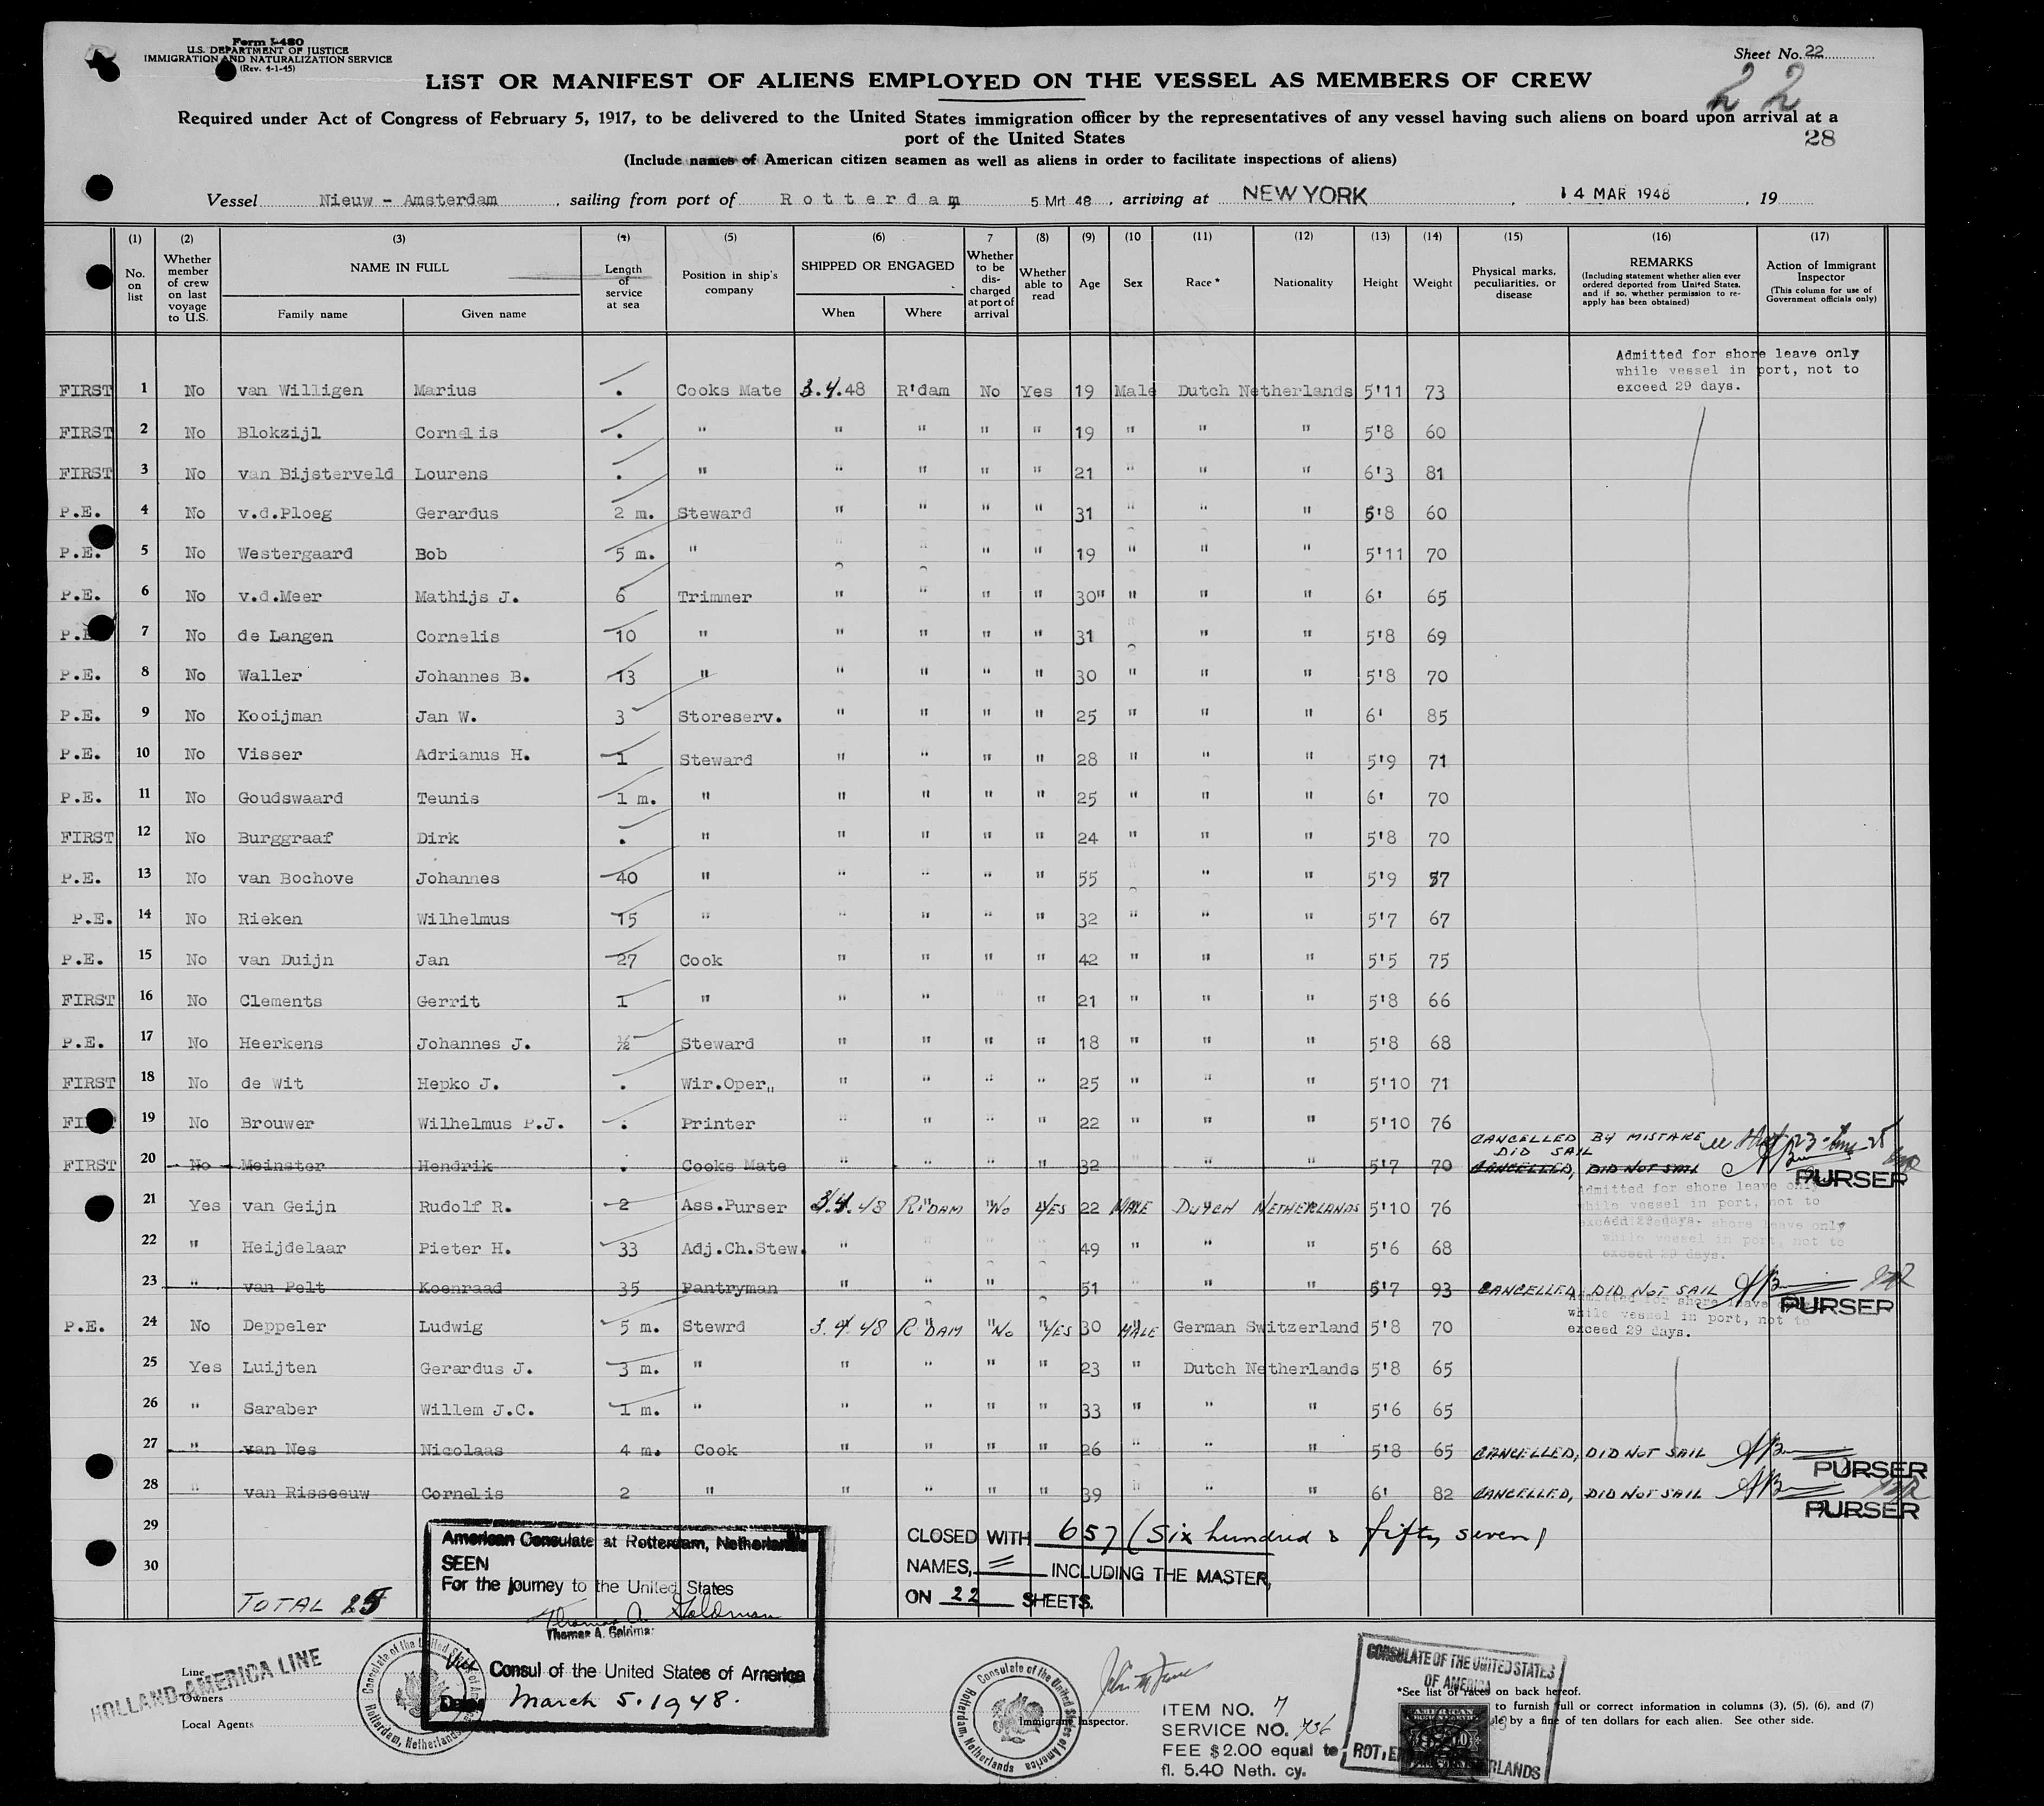 Form I-480
U.S. DEPARTMENT OF JUSTICE
IMMIGRATION AND NATURALIZATION SERVICE
(Rev. 4-1-45)
Sheet No. 22
22
28
LIST OR MANIFEST OF ALIENS EMPLOYED ON THE VESSEL AS MEMBERS OF CREW
Required under Act of Congress of February 5, 1917, to be delivered to the United States immigration officer by the representatives of any vessel having such aliens on board upon arrival at a
port of the United States
(Include names of American citizen seamen as well as aliens in order to facilitate inspections of aliens)
Vessel Nieuw - Amsterdam, sailing from port of Rotterdam 5 Mrt 48, arriving at NEW YORK, 14 MAR 1948, 19
(1) (2) (3) (4) (5) (6) 7 (8) (9) (10 (11) (12) (13) (14) (15) (16) (17)
No. on list
Whether member of crew on last voyage to U.S.
NAME IN FULL
Family name
Given name
Length of service at sea
Position in ship's company
SHIPPED OR ENGAGED
When
Where
Whether to be discharged at port of arrival
Whether able to read
Age
Sex
Race *
Nationality
Height
Weight
Physical marks, peculiarities, or disease
REMARKS
(Including statement whether alien ever ordered deported from United States, and if so, whether permission to re-apply has been obtained)
Action of Immigrant Inspector
(This column for use of Government officials only)
Admitted for shore leave only
while vessel in port, not to
exceed 29 days.
FIRST 1 No van Willigen Marius . Cooks Mate 3.4.48 R'dam No Yes 19 Male Dutch Netherlands 5'11 73
FIRST 2 No Blokzijl Cornelis . " " " " " 19 " " " 5'8 60
FIRST 3 No van Bijsterveld Lourens . " " " " " 21 " " " 6'3 81
P.E. 4 No v.d.Ploeg Gerardus 2 m. Steward " " " " 31 " " " 5'8 60
P.E. 5 No Westergaard Bob 5 m. " " " " " 19 " " " 5'11 70
P.E. 6 No v.d.Meer Mathijs J. 6 Trimmer " " " " 30" " " " 6' 65
P.E. 7 No de Langen Cornelis 10 " " " " " 31 " " " 5'8 69
P.E. 8 No Waller Johannes B. 13 " " " " " 30 " " " 5'8 70
P.E. 9 No Kooijman Jan W. 3 Storeserv. " " " " 25 " " " 6' 85
P.E. 10 No Visser Adrianus H. 1 Steward " " " " 28 " " " 5'9 71
P.E. 11 No Goudswaard Teunis 1 m. " " " " " 25 " " " 6' 70
FIRST 12 No Burggraaf Dirk . " " " " " 24 " " " 5'8 70
P.E. 13 No van Bochove Johannes 40 " " " " " 55 " " " 5'9 57
P.E. 14 No Rieken Wilhelmus 15 " " " " " 32 " " " 5'7 67
P.E. 15 No van Duijn Jan 27 Cook " " " " 42 " " " 5'5 75
FIRST 16 No Clements Gerrit 1 " " " " 21 " " " 5'8 66
P.E. 17 No Heerkens Johannes J. ½ Steward " " " " 18 " " " 5'8 68
FIRST 18 No de Wit Hepko J. . Wir.Oper,, " " " " 25 " " " 5'10 71
FIRST 19 No Brouwer Wilhelmus P.J. . Printer " " " " 22 " " " 5'10 76
CANCELLED BY MISTAKE
DID SAIL
FIRST 20 No Meinster Hendrik . Cooks Mate " " " " 32 " " " 5'7 70 CANCELLED, DID NOT SAIL
PURSER
Admitted for shore leave only
while vessel in port, not to
exceed 29 days.
21 Yes van Geijn Rudolf R. 2 Ass.Purser 3.4.48 R'DAM No YES 22 MALE DUTCH NETHERLANDS 5'10 76
shore leave only
while vessel in port, not to
exceed 29 days.
22 " Heijdelaar Pieter H. 33 Adj.Ch.Stew. " " " " 49 " " " 5'6 68
23 " van Pelt Koenraad 35 Pantryman " " " 51 " " " 5'7 93 CANCELLED, DID NOT SAIL
PURSER
Admitted for shore leave
while vessel in port, not to
exceed 29 days.
P.E. 24 No Deppeler Ludwig 5 m. Stewrd 3.4.48 R'DAM No YES 30 MALE German Switzerland 5'8 70
25 Yes Luijten Gerardus J. 3 m. " " " " " 23 " Dutch Netherlands 5'8 65
26 " Saraber Willem J.C. 1 m. " " " " " 33 " " " 5'6 65
27 " van Nes Nicolaas 4 m. Cook " " " " 26 " " " 5'8 65 CANCELLED, DID NOT SAIL
PURSER
28 " van Risseeuw Cornelis 2 " " " " " 39 " " " 6' 82 CANCELLED, DID NOT SAIL
PURSER
29
30
TOTAL 25
American Consulate at Rotterdam, Netherlands
SEEN
For the journey to the United States
Thomas A. Goldman
Vice Consul of the United States of America
Date March 5. 1948.
CLOSED WITH 657 (Six hundred & fifty seven)
NAMES, INCLUDING THE MASTER,
ON 22 SHEETS.
Line
HOLLAND-AMERICA LINE
Owners
Local Agents
Consulate of the United States of America Rotterdam, Netherlands
Consulate of the United States of America Rotterdam, Netherlands
Immigrant Inspector.
ITEM NO. 7
SERVICE NO. 736
FEE $2.00 equal to
fl. 5.40 Neth. cy.
CONSULATE OF THE UNITED STATES
OF AMERICA
*See list of races on back hereof.
to furnish full or correct information in columns (3), (5), (6), and (7)
by a fine of ten dollars for each alien. See other side.
AMERICAN